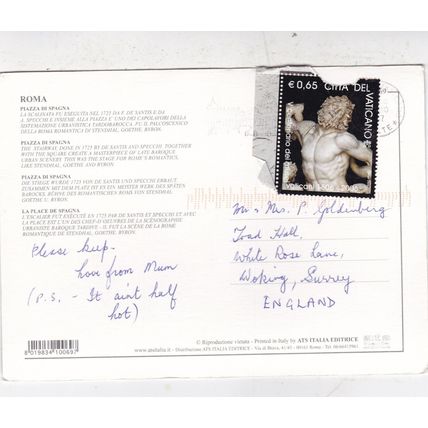 ROMA
PIAZZA DI SPAGNA
LA SCALINATA FU ESEGUITA NEL 1725 DA F. DE SANTIS E DA
A. SPECCHI E INSIEME ALLA PIAZZA E' UNO DEI CAPOLAVORI DELLA
SISTEMAZIONE URBANISTICA TARDOBAROCCA. FU IL PALCOSCENICO
DELLA ROMA ROMANTICA DI STENDHAL, GOETHE, BYRON.
PIAZZA DI SPAGNA
THE STAIRWAY DONE IN 1725 BY DE SANTIS AND SPECCHI TOGETHER
WITH THE SQUARE CREATE A MASTERPIECE OF LATE-BAROQUE
URBAN SCENERY THIS WAS THE STAGE FOR ROME'S ROMANTICS,
LIKE STENDHAL, GOETHE, AND BYRON.
PIAZZA DI SPAGNA
DIE STIEGE WURDE 1725 VON DE SANTIS UND SPECCHI ERBAUT
ZUSAMMEN MIT DEM PLATZ IST ES EIN MEISTER WERK DES SPÄTEN
BAROCKES,
ROMS VON STENDHAL, GOETHE UND BYRON.
LA PLACE DE SPAGNE
L'ESCALIER FUT EXÉCUTÉ EN 1725 PAR DE SANTIS ET SPECCHI ET AVEC
LA PLACE EST L'UN DES CHEF-D'OEUVRES DE LA SCENOGRAPHIE
URBANISTE BAROQUE TARDIVE - IL FUT LA SCÈNE DE LA ROME
ROMANTIQUE DE STENDHAL, GOETHE, ET BYRON.
€ 0,65 CITTÀ DEL VATICANO
Mr & Mrs. P. Goldenberg
Toad Hall,
White Rose Lane,
Woking, Surrey
ENGLAND
Please keep.
Love from Mum
(P.S. - It ain't half
hot)
8 019834 100697
© Riproduzione vietata - Printed in Italy by ATS ITALIA EDITRICE
www.atsitalia.it - Distribuzione ATS ITALIA EDITRICE - Via di Brava, 41/43 - 00163 Roma - Tel. 06/66415961